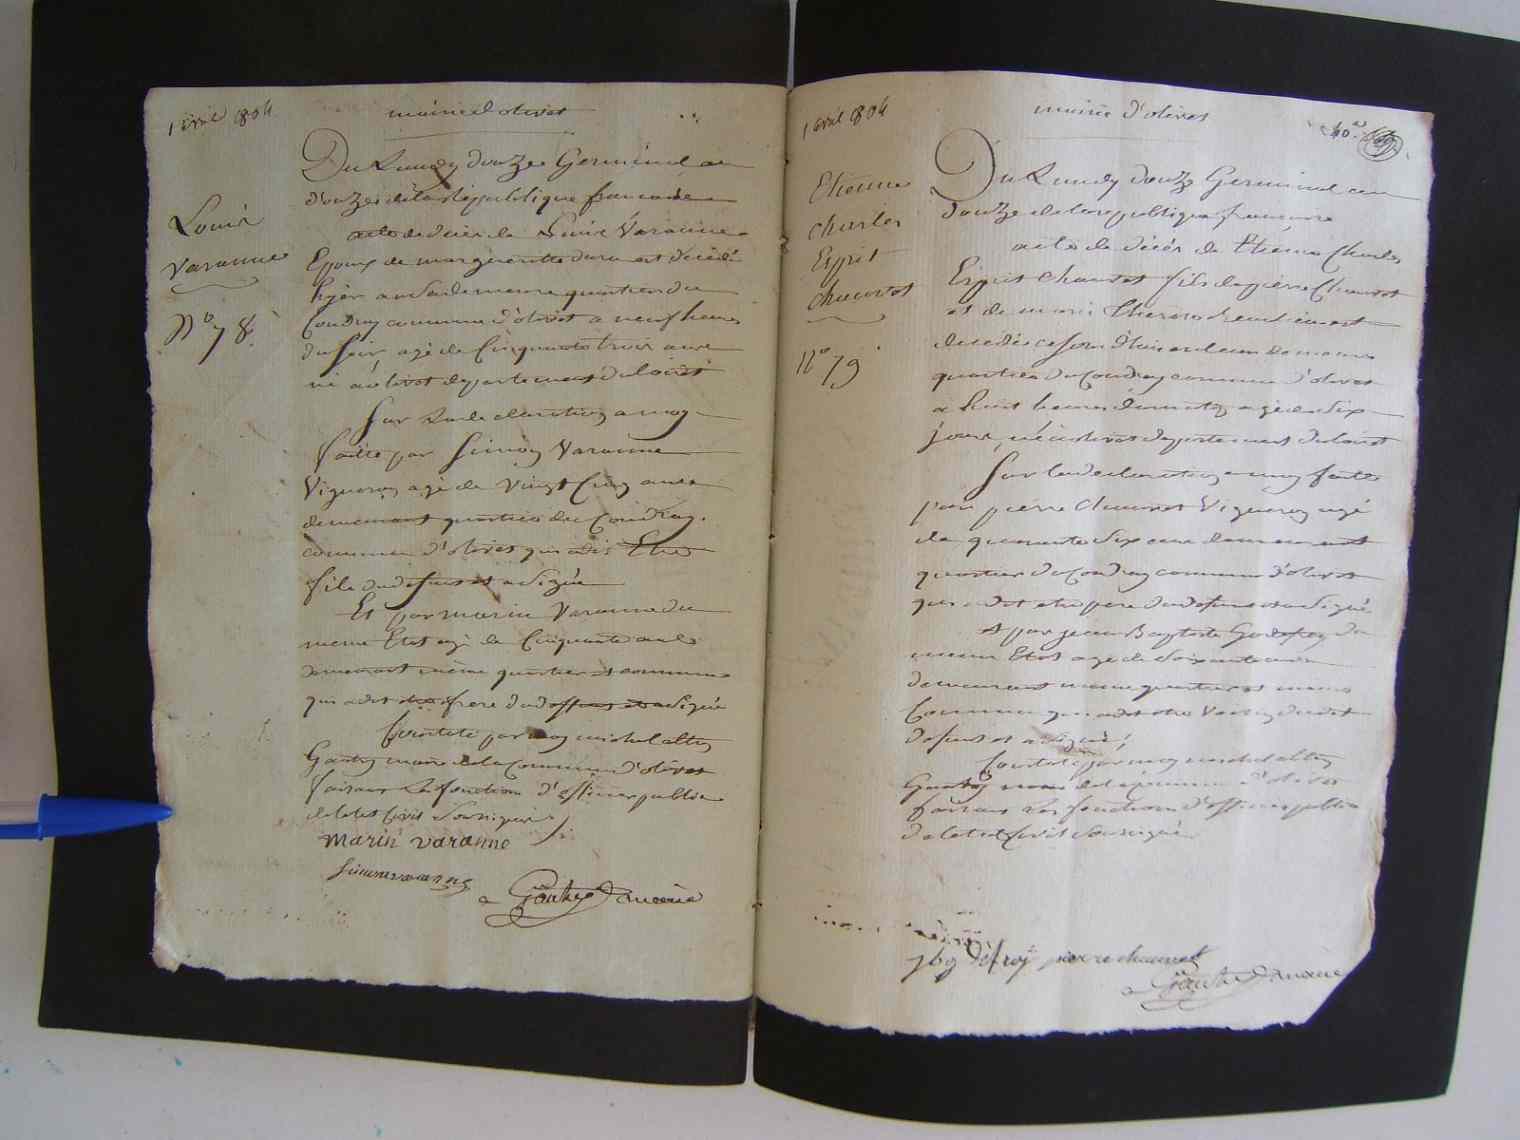 1 avril 1804
mairie d'olivet
Louis
Varanne
N° 78
Du Lundy douze Germinal an
douze de la republique francaise
acte de décés de Louis Varanne
Epoux de marguerite durant décédé
hyer en sa demeure quartier du
Coudray commune d'olivet a neuf heures
du soir agé de Cinquante trois ans
né a olivet departement du loiret
Sur La declaration a moy
faitte par Simon Varanne
Vigneron agé de Vingt Cinq ans
demeurant quartier du Coudray
commune d'olivet qui a dit Etre
fils du defunt et a Signé
Et par marin Varanne du
meme Etat agé de Cinquante ans
demeurant même quartier et commune
qui a dit etre frere du deffunt et a Signé
Constaté par moy michel
Gautry maire de la Commune d'olivet
faisant Les fonction d'officier public
de letat Civil Soussigné
marin varanne
Simon varanne
Gautry maire
1 avril 1804
mairie d'olivet
40
Etienne
Charles
Esprit
Chauvet
N° 79
Du Lundy douze Germinal an
douze de la republique francaise
acte de décés de Etienne Charles
Esprit Chauvet fils de pierre Chauvet
et de marie Therese
decedé ce jourd'hui en leur demeure
quartier du Coudray commune d'olivet
a huit heures du matin agé de Six
jours, né a olivet departement du loiret
Sur la declaration a moy faitte
par pierre Chauvet Vigneron agé
de quarante Six ans demeurant
quartier du Coudray commune d'olivet
qui a dit etre pere du defunt et a Signé
et par jean Baptiste Godefroy du
meme Etat agé de Soixante ans
demeurant meme quartier et meme
Commune qui a dit etre Voisin du dit
defunt et a Signé
Constaté par moy michel
Gautry maire de la commune d'olivet
faisant Les fonction d'officier public
de letat Civil Soussigné
pierre chauvet
Gautry maire